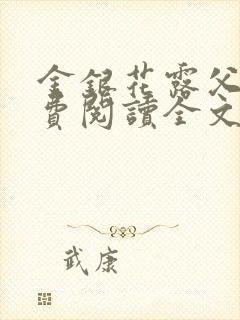 金銀花露父
費閱讀全文
武康